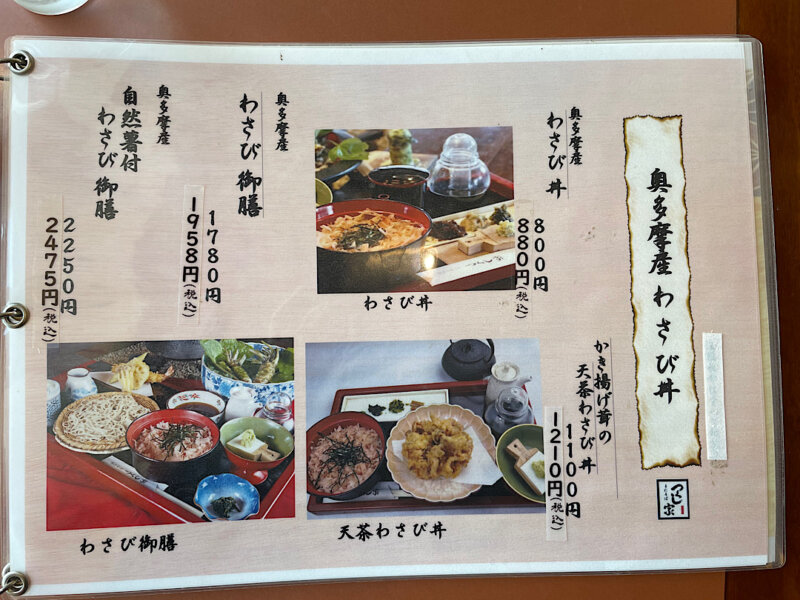 奥多摩産わさび丼
奥多摩産
わさび丼
800円
880円(税込)
わさび丼
かき揚げ茸の
天茶わさび丼
1100円
1210円(税込)
天茶わさび丼
奥多摩産
わさび御膳
1780円
1958円(税込)
奥多摩産
自然薯付
わさび御膳
2250円
2475円(税込)
わさび御膳